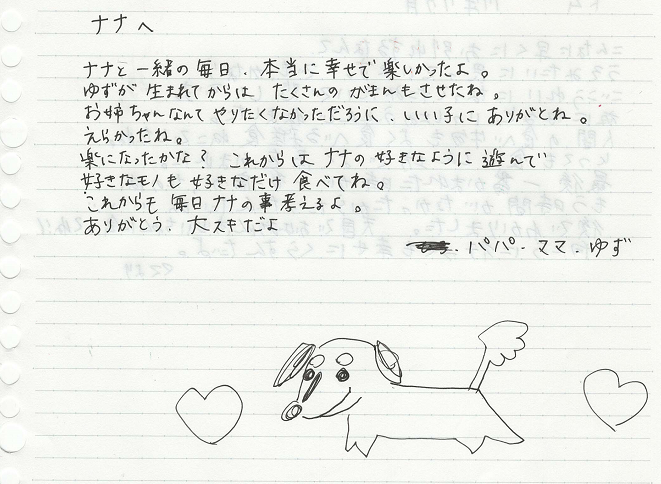 ナナへ
ナナと一緒の毎日、本当に幸せで楽しかったよ。
ゆずが生まれてからはたくさんのがまんもさせたね。
お姉ちゃんなんてやりたくなかっただろうに、いい子にありがとね。
えらかったね。
楽になったかな？これからはナナの好きなように遊んで
好きなモノも好きなだけ食べてね。
これからも毎日ナナの事考えるよ。
ありがとう、大スキだよ
パパ・ママ・ゆず